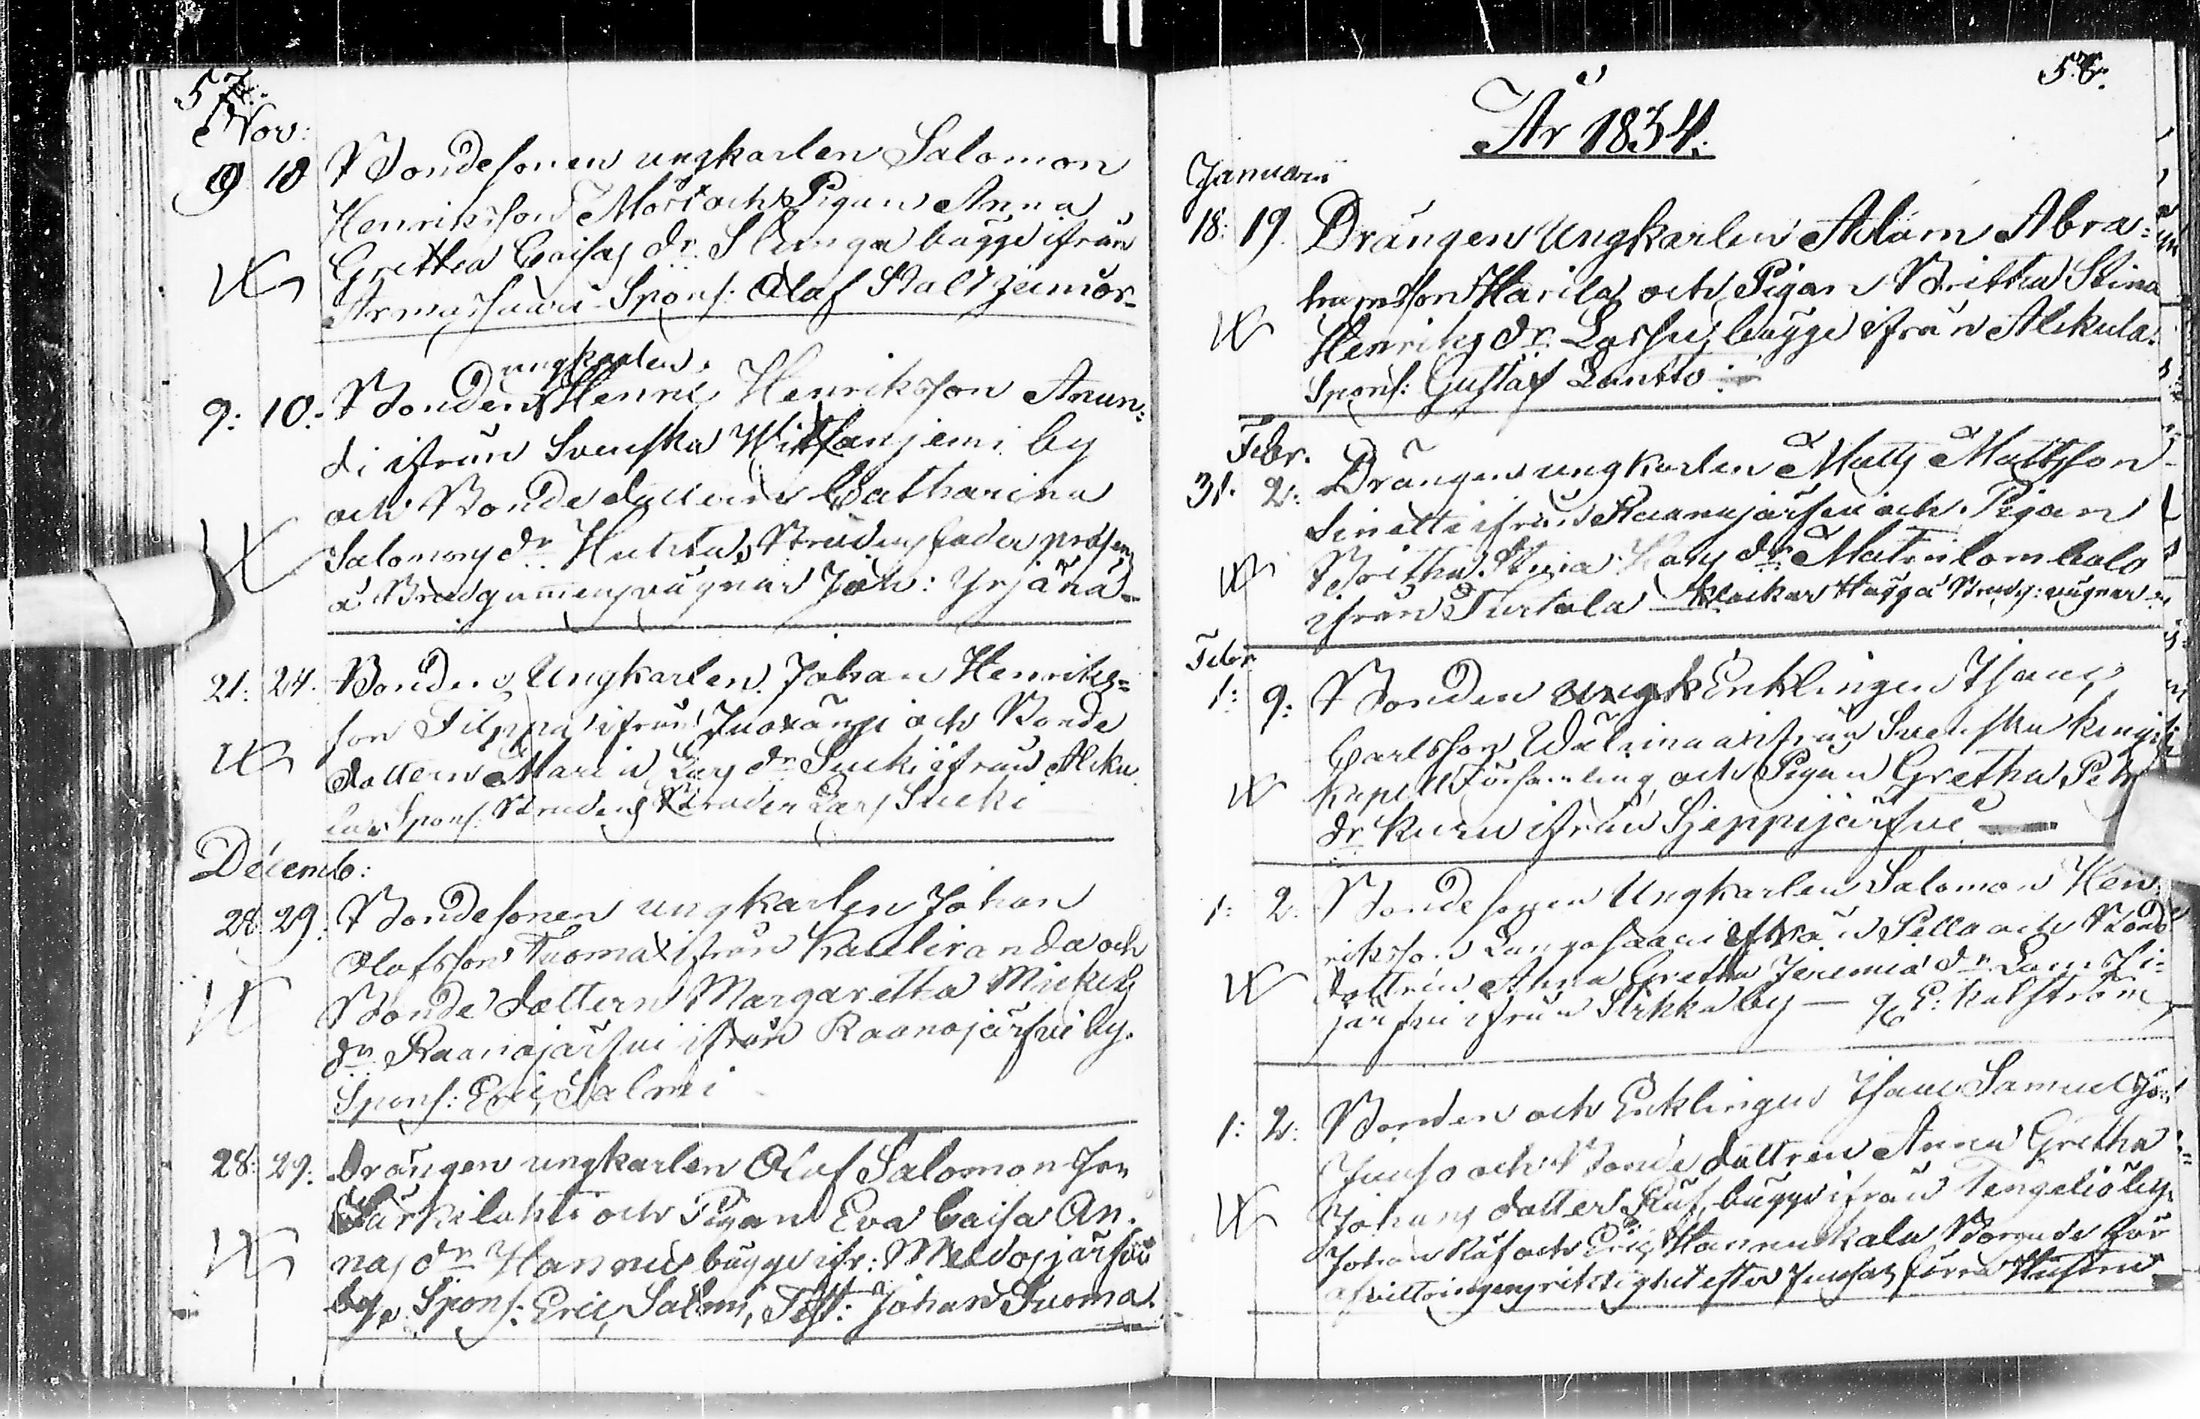 57.
Nov:
9 10 Bondesonen ungkarlen Salomon
Henriksson Mört och Pigan Anna
Gretha Caisa dr. Slunga bägge ifrån
Armassaari Spons: Olaf Stålt junior
ungkarlen
9: 10: Bonden Henric Henriksson Anun:
di ifrån Svenska Wittaniemi by
och Bonde dottern Catharina
Salomons dr Huhta, Brudens fader
å Brudgummens vägnar Joh: Yrjänä
21: 24. Bonden Ungkarlen Johan Henriks=
son Filppa ifrån Juoxängi och Bonde
dottern Maria Lars dr Sucki ifrån Alku
la Spons. Brudens Broder Lars Sucki
Decemb:
28 29: Bondesonen ungkarlen Johan
Olofsson Tuoma ifrån Kauliranda och
Bonde dottern Margaretta Mickels
dr Raanojärfvi ifrån Raanojärfvi by.
Spons: Eric Salmi
28: 29: Drängen ungkarlen Olof Salomonsson
Särkilahti och Pigan Eva Caisa An.
nas dr Hannu bägge ifr: Meldosjärfvi
by. Spons: Eric Salmi, Test: Johan Tuoma.
58.
År 1834.
Januarii
18: 19. Drängen Ungkarlen Adam Abra=
hamsson Harila och Pigan Britha Stina
Henriks dr. Lassu, bägge ifrån Alkula.
Spons: Gustaf Lantto
Febr.
31. 2: Drängen ungkarlen Matts Mattsson
Sinetti ifrån Raanojärfvi och Pigan
Britha Stina Lars dr. Matinlombolo
ifrån Turtola Klockar Hägg å Bruds: vägnar
Febr
1: 9: Bonden Enklingen Isaac
Carlsson Wälimaa ifrån Svenska Kengis
Kapell Församling, och Pigan Gretha Pehr
dr Kuru ifrån Sieppijärfvi
1: 2. Bondesonen Ungkarlen Salomon Hen
riksson Langasaari ifrån Pello och Bonde
dottren Anna Gretha Jeremiæ dr Lam
järfvi ifrån Sirkka by — E. Kalström
1: 2: Bonden och Enklingen Isaac Samuelsson
Juuso och Bonde dottren Anna Gretha
Johans dotter Räf, bägge ifrån Tengeliö by.
Johan Räf och Eric Hannukala Borgade för
afvittringens riktighet efter Juusas förra Hustru